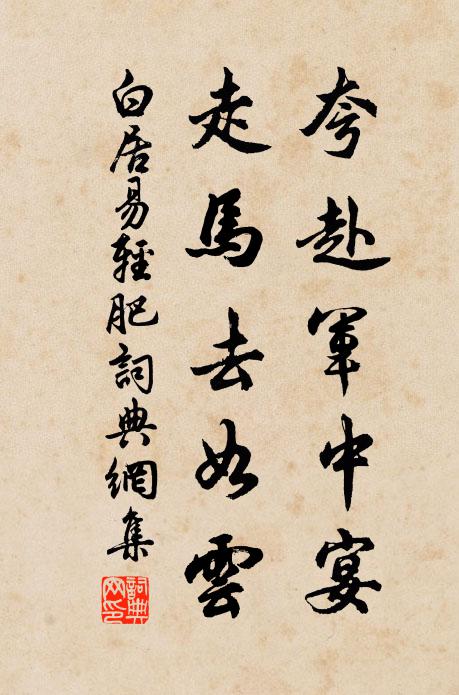 夸赴軍中宴
走馬去如雲
白居易輕肥詞典網集
詞典网印